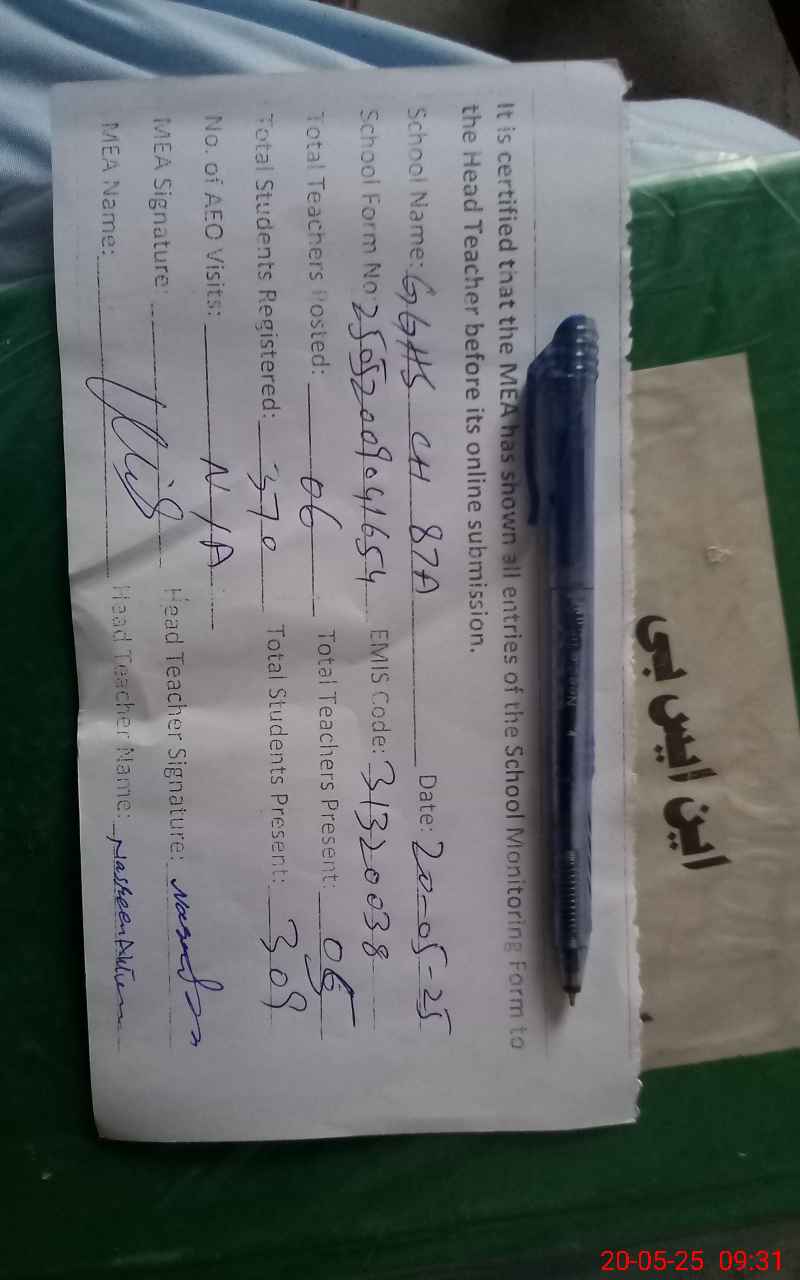 It is certified that the MEA has shown all entries of the School Monitoring Form to
the Head Teacher before its online submission.
School Name: GGHS CH 87A Date: 20-05-25
School Form No: 25052009041654 EMIS Code: 31320038
Total Teachers Posted: 06 Total Teachers Present:
Total Students Registered: 370 Total Students Present: 309
No. of AEO Visits: N/A
MEA Signature: Head Teacher Signature:
MEA Name: Head Teacher Name: Nasreen Akhtar
این ایس بی
20-05-25 09:31